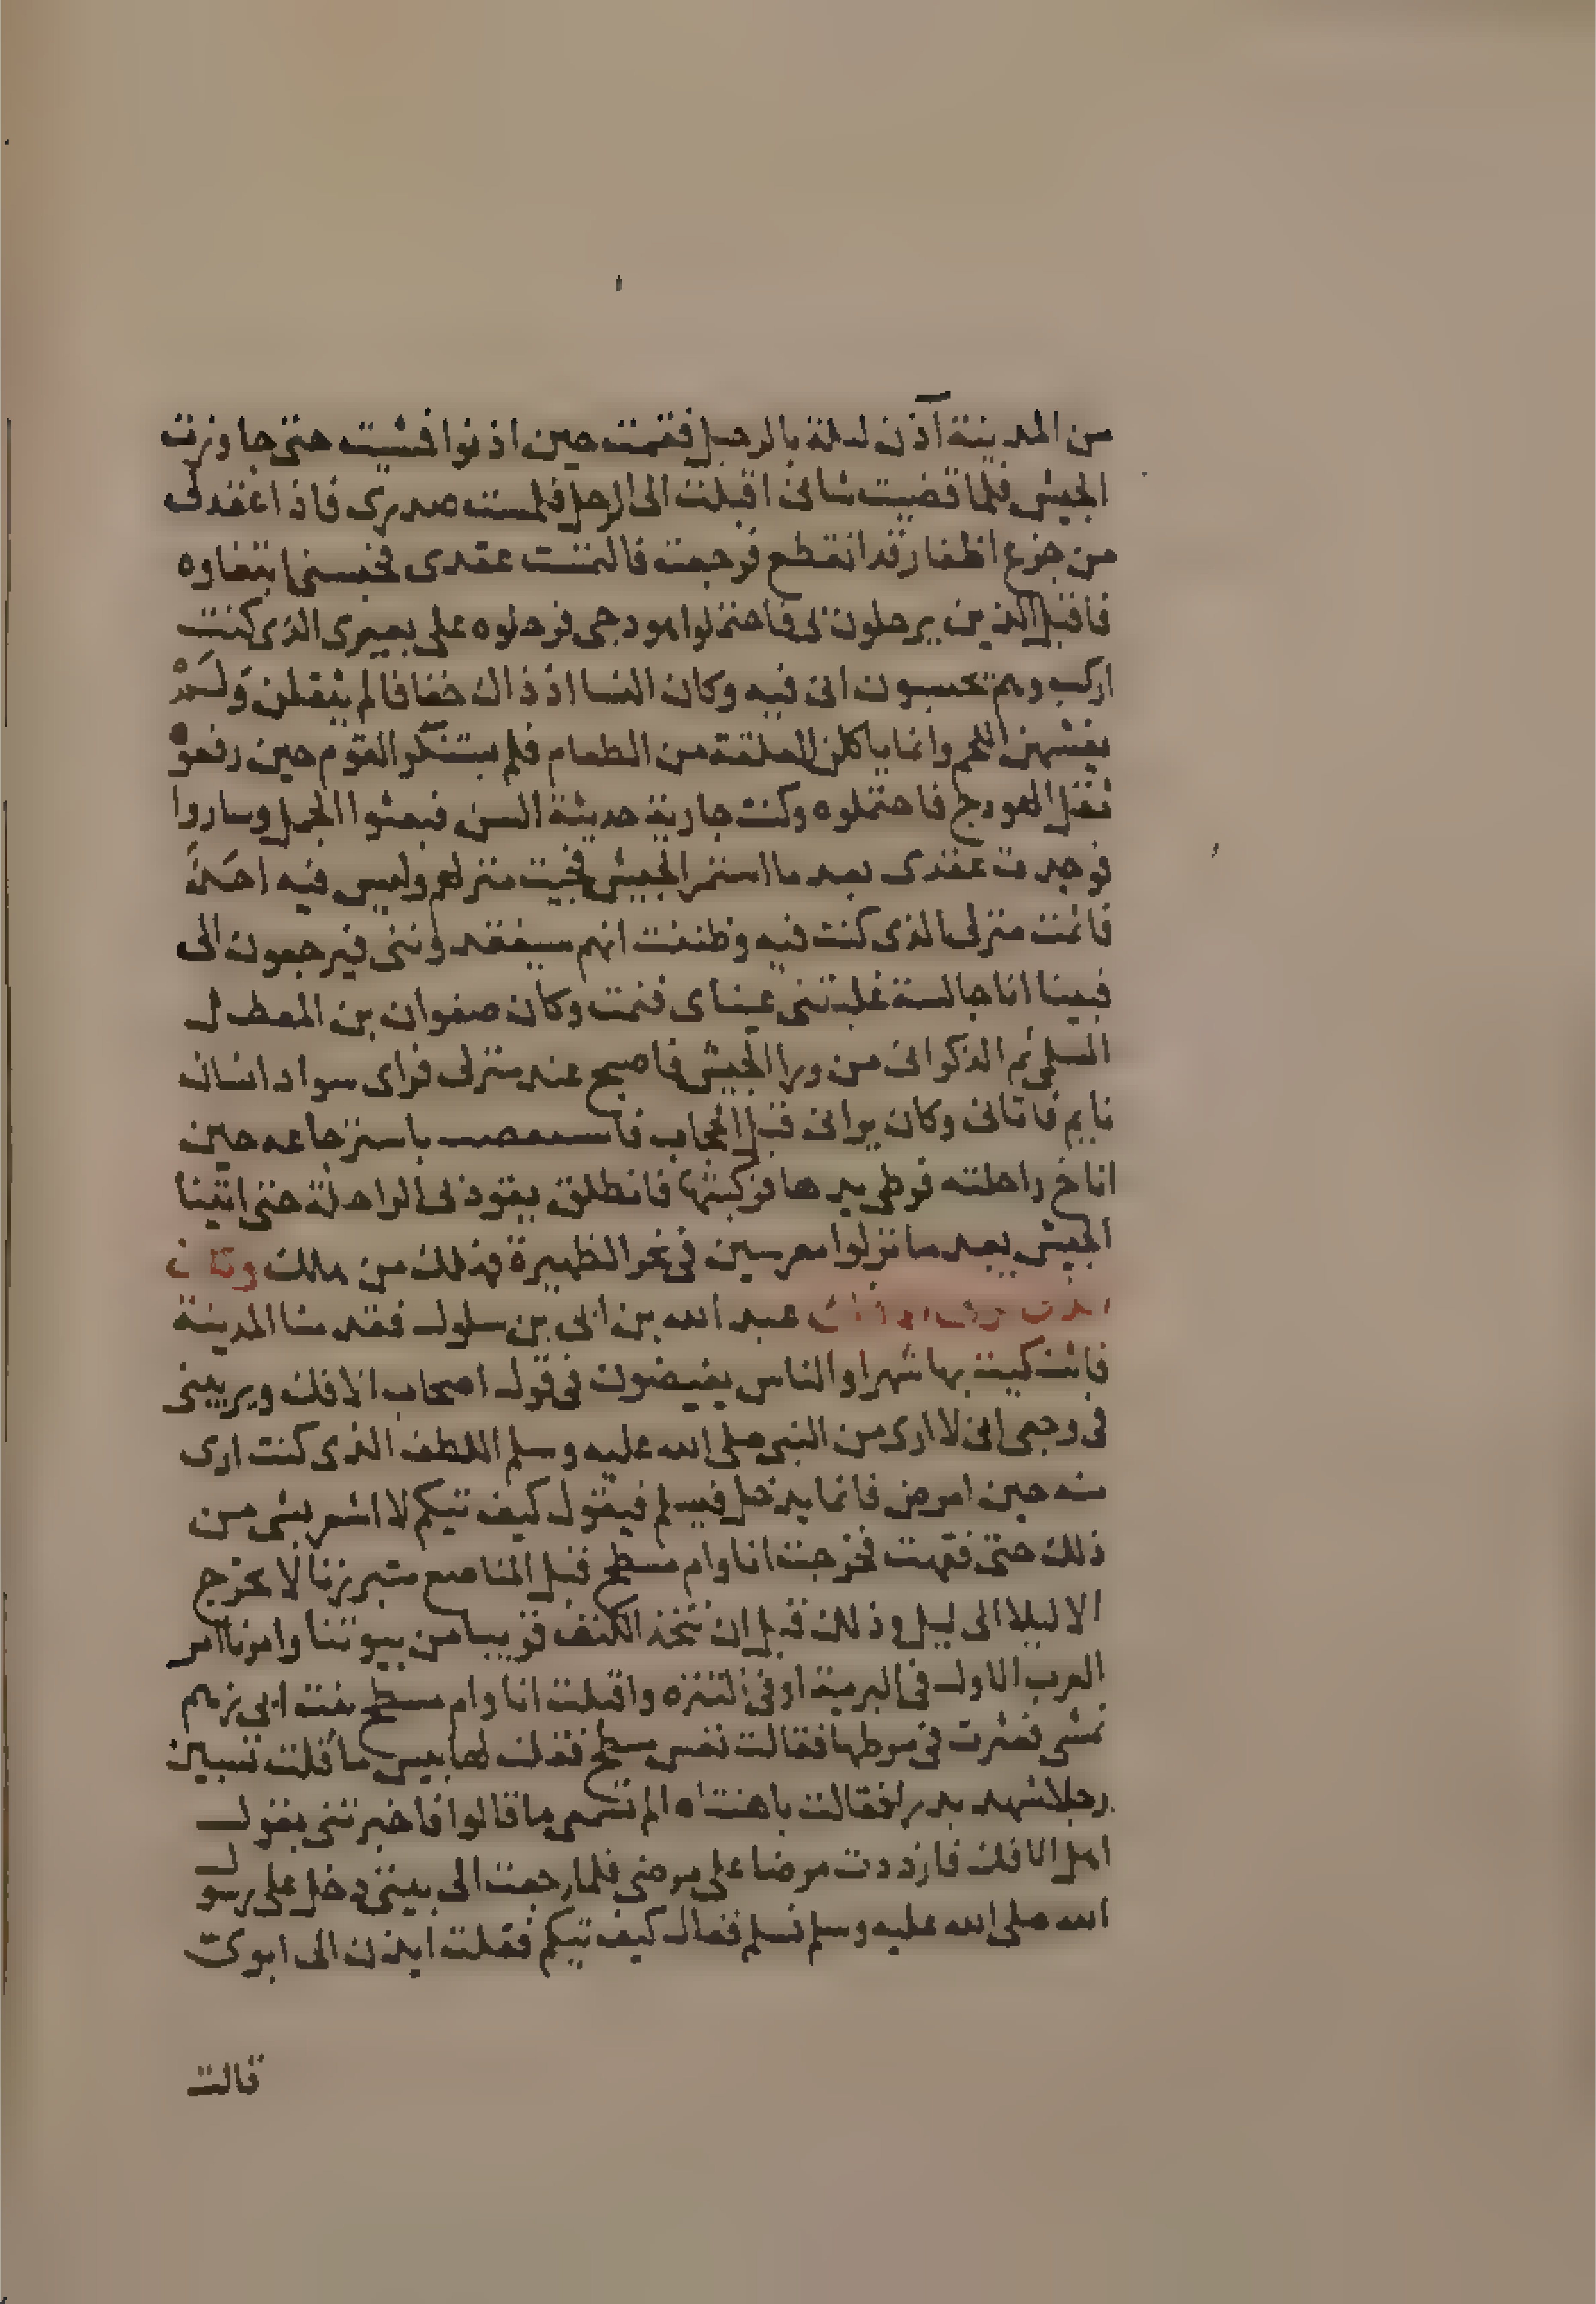 من المدينة آذن ليلة بالرحيل فقمت حين اذنوا فمشيت حتى جاوزت
الجيش فلما قضيت شانى اقبلت الى الرحل فلمست صدرى فاذا عقد لى
من جزع اظفار قد انقطع فرجعت فالتمست عقدى فحبسنى ابتغاوه
فاقبل الذين يرحلون لى فاحتملوا هودجى فرحلوه على بعيرى الذى كنت
اركب وهم يحسبون انى فيه وكان النسا اذ ذاك خفافا لم يثقلن ولم
يغشهن اللحم وانما ياكلن العلقة من الطعام فلم يستنكر القوم حين رفعوا
ثقل الهودج فاحتملوه وكنت جارية حديثة السن فبعثوا الجمل وساروا
فوجدت عقدى بعد ما استمر الجيش فجيت منزلهم وليس فيه احد
فاممت منزلى الذى كنت فيه وظننت انهم سيفقدوننى فيرجعون الى
فبينا انا جالسة غلبتنى عيناى فنمت وكان صفوان بن المعطل
السلمى ثم الذكوانى من ورا الجيش فاصبح عند منزلى فراى سواد انسان
نايم فاتانى وكان يرانى قبل الحجاب باسترجاعه حين
اناخ راحلته فوطى يدها فركبتها فانطلق يقود لى الراحلة حتى اتينا
الجيش بعد ما نزلوا معرسين فى نحو الظهيرة فهلك من هلك وكان
عبد الله بن ابى بن سلول فقدمنا المدينة
فاشتكيت بها شهرا والناس يفيضون فى قول اصحاب الافك ويريبنى
فى وجعى انى لا ارى من النبى صلى الله عليه وسلم اللطف الذى كنت ارى
منه حين امرض فانما يدخل فيسلم فيقول كيف تيكم لا اشعر بشى من
ذلك حتى نقهت فخرجت انا وام مسطح قبل المناصع متبرزنا لا نخرج
الا ليلا الى ليل وذلك قبل ان نتخذ الكنف قريبا من بيوتنا وامرنا امر
العرب الاول فى البرية او فى التنزه واقبلت انا وام مسطح بنت ابى رهم
نمشى فعثرت فى مرطها فقالت تعس مسطح فقلت لها بيس ما قلت تسبين
رجلا شهد بدرا فقالت ياهنتاه الم تسمعى ما قالوا فاخبرتنى بقول
اهل الافك فازددت مرضا على مرضى فلما رجعت الى بيتى دخل على رسول
الله صلى الله عليه وسلم فسلم فقال كيف تيكم فقلت ايذن الى ابوى
قالت